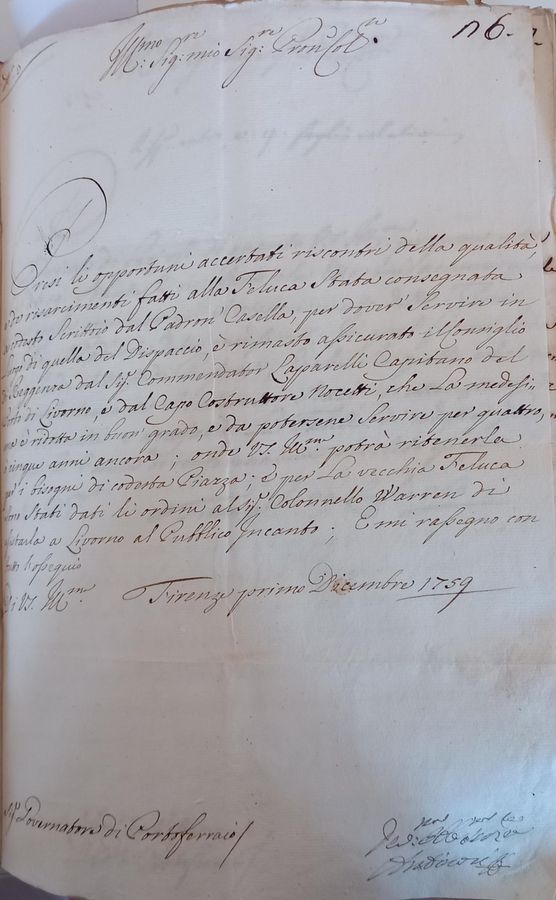 126.
Ill:mo Sig:re mio Sig:re Pron Col:mo
Presi li opportuni accertati riscontri della qualità,
e de' risarcimenti fatti alla Feluca Stata consegnata
Scrittoio dal Padron' Casella, per dover' Servire in
di quella del Dispaccio, è rimasto assicurato il Consiglio
di Reggenza dal Sig:r Commendator Lapparelli Capitano del
Porto di Livorno, e dal Capo Costruttore Nocetti, che La medesi-
ma è ridotta in buon' grado, e da potersene Servire per quattro,
o cinque anni ancora; onde VS. Ill:ma potrà ritenerla
per i bisogni di codesta Piazza; e per La vecchia Feluca
sono Stati dati li ordini al Sig:r Colonnello Warren di
a Livorno al Pubblico Incanto; E mi rassegno con
tutto l'ossequio
Di VS. Ill:ma Firenze primo Dicembre 1759
Sig:r Governatore di Portoferraio/